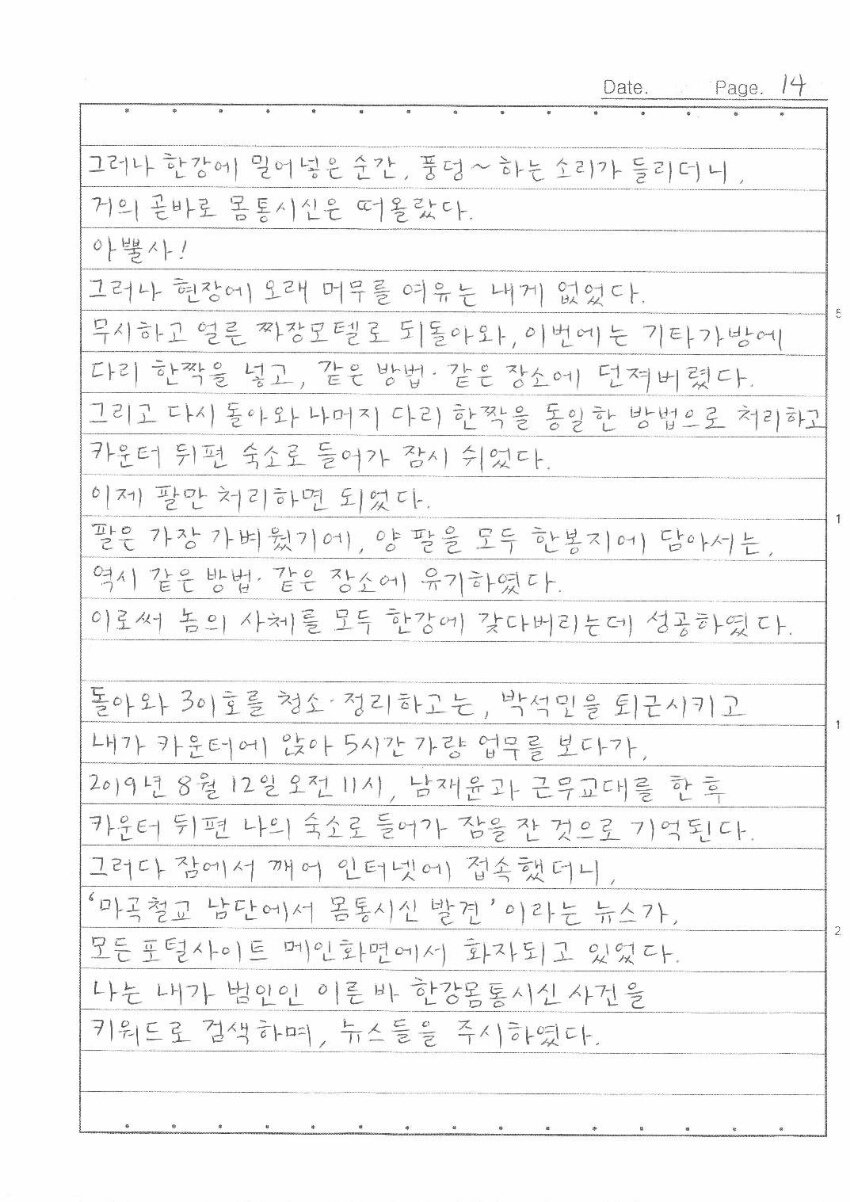 Date. Page. 14
그러나 한강에 밀어넣은 순간, 풍덩~하는 소리가 들리더니,
거의 곧바로 몸통시신은 떠올랐다.
아뿔사!
그러나 현장에 오래 머무를 여유는 내게 없었다.
5
무시하고 얼른 짜장모텔로 되돌아와, 이번에는 기타가방에
다리 한짝을 넣고, 같은 방법·같은 장소에 던져버렸다.
그리고 다시 돌아와 나머지 다리 한짝을 동일한 방법으로 처리하고
카운터 뒤편 숙소로 들어가 잠시 쉬었다.
이제 팔만 처리하면 되었다.
1
팔은 가장 가벼웠기에, 양 팔을 모두 한봉지에 담아서는,
역시 같은 방법·같은 장소에 유기하였다.
이로써 놈의 사체를 모두 한강에 갖다버리는데 성공하였다.
돌아와 301호를 청소·정리하고는, 박석민을 퇴근시키고
1
내가 카운터에 앉아 5시간 가량 업무를 보다가,
2019년 8월 12일 오전 11시, 남재윤과 근무교대를 한 후
카운터 뒤편 나의 숙소로 들어가 잠을 잔 것으로 기억된다.
그러다 잠에서 깨어 인터넷에 접속했더니,
'마곡철교 남단에서 몸통시신 발견'이라는 뉴스가,
2
모든 포털사이트 메인화면에서 화자되고 있었다.
나는 내가 범인인 이른 바 한강몸통시신 사건을
키워드로 검색하며, 뉴스들을 주시하였다.